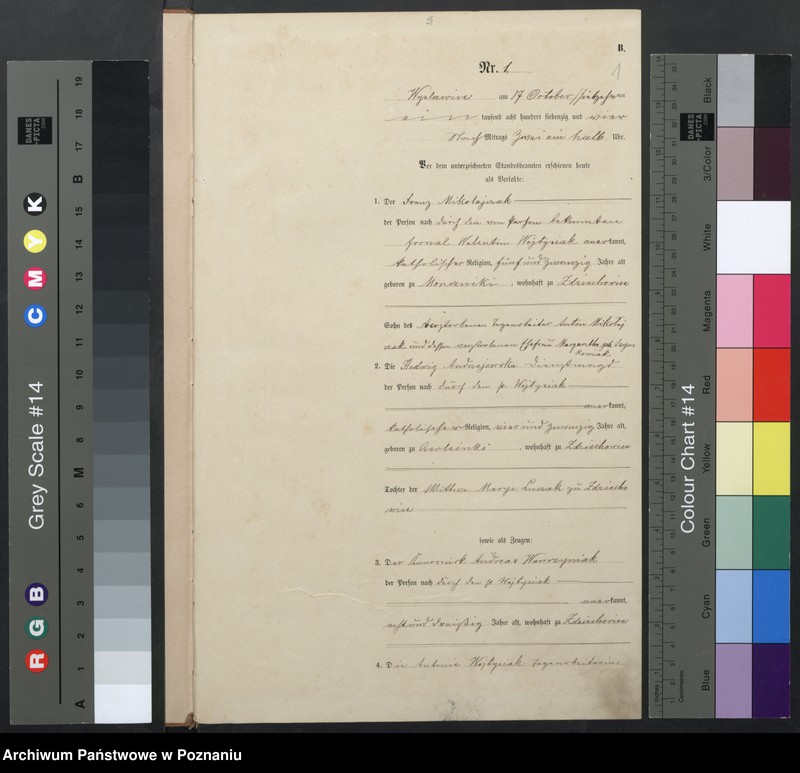 B.
Nr. 1.
1
am 17 October
ein tausend acht hundert siebenzig und vier
Nach Mittags Zwei ein halb Uhr.
Vor dem unterzeichneten Standesbeamten erschienen heute
als Verlobte:
1. Der Franz Mikolajczak
der Person nach durch den von Person bekannten
fornal Valentin Wojtysiak anerkannt,
katholischer Religion, fünf und zwanzig Jahre alt
geboren zu , wohnhaft zu Zdziechowice
Sohn des verstorbenen Tagearbeiter Anton Mikolaj
czak und dessen verstorbenen Ehefrau Margaretha geb.
2. Die Hedwig Andrzejewska Dienstmagd
der Person nach durch den p. Wojtysiak
anerkannt,
katholischer Religion, vier und zwanzig Jahre alt,
geboren zu , wohnhaft zu Zdziechowice
Tochter der Wittwe zu Zdziecho
wice
sowie als Zeugen:
3. Der Komornik Andreas Wawrzyniak
der Person nach durch den p Wojtysiak
anerkannt,
acht und dreißig Jahre alt, wohnhaft zu Zdziechowice
4. Die Antonie Wojtysiak Tagearbeiterin
Grey Scale #14
R G B
C M Y K
A 1 2 3 4 5 6 M 8 9 10 11 12 13 14 15 B 17 18 19
DANES
-PICTA
.COM
Colour Chart #14
Blue
Cyan
Green
Yellow
Red
Magenta
White
3/Color
Black
Inches
Centimetres
DANES
-PICTA
.COM
Archiwum Państwowe w Poznaniu